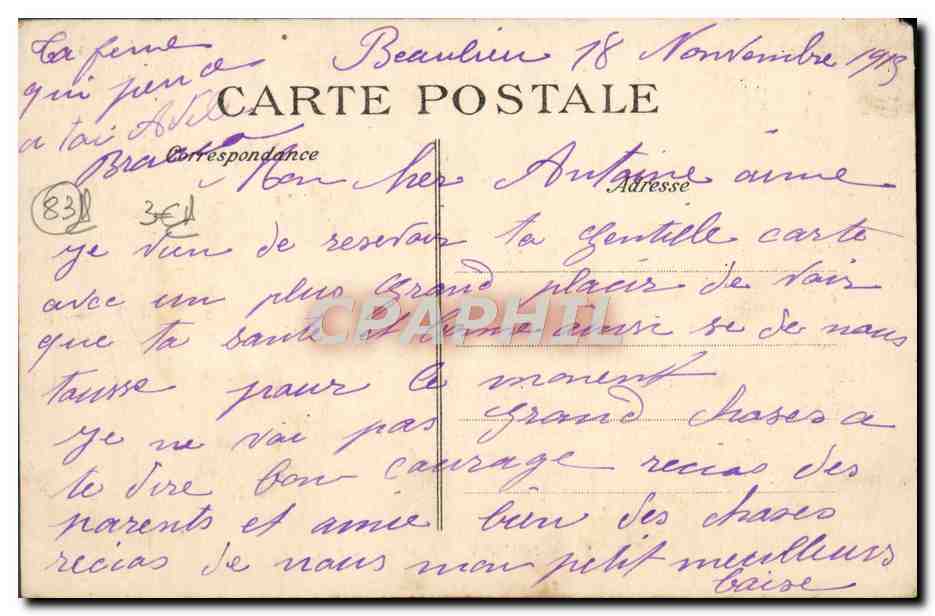 Beaulieu 18 Novembre 1913
CARTE POSTALE
Correspondance
Adresse
Mon cher Antoine aime
Je vien de resevoir ta gentille carte
avec un plus grand plaisir de voir
que ta santé et bonne ainsi se de nous
tousse pour le moment
Je ne voi pas grand choses a
te dire bon courage recias des
parents et amie bien des choses
recias de nous mon petit meulleurs
baise
ta feme
qui pense
a toi
83
3€
CPAPHIL